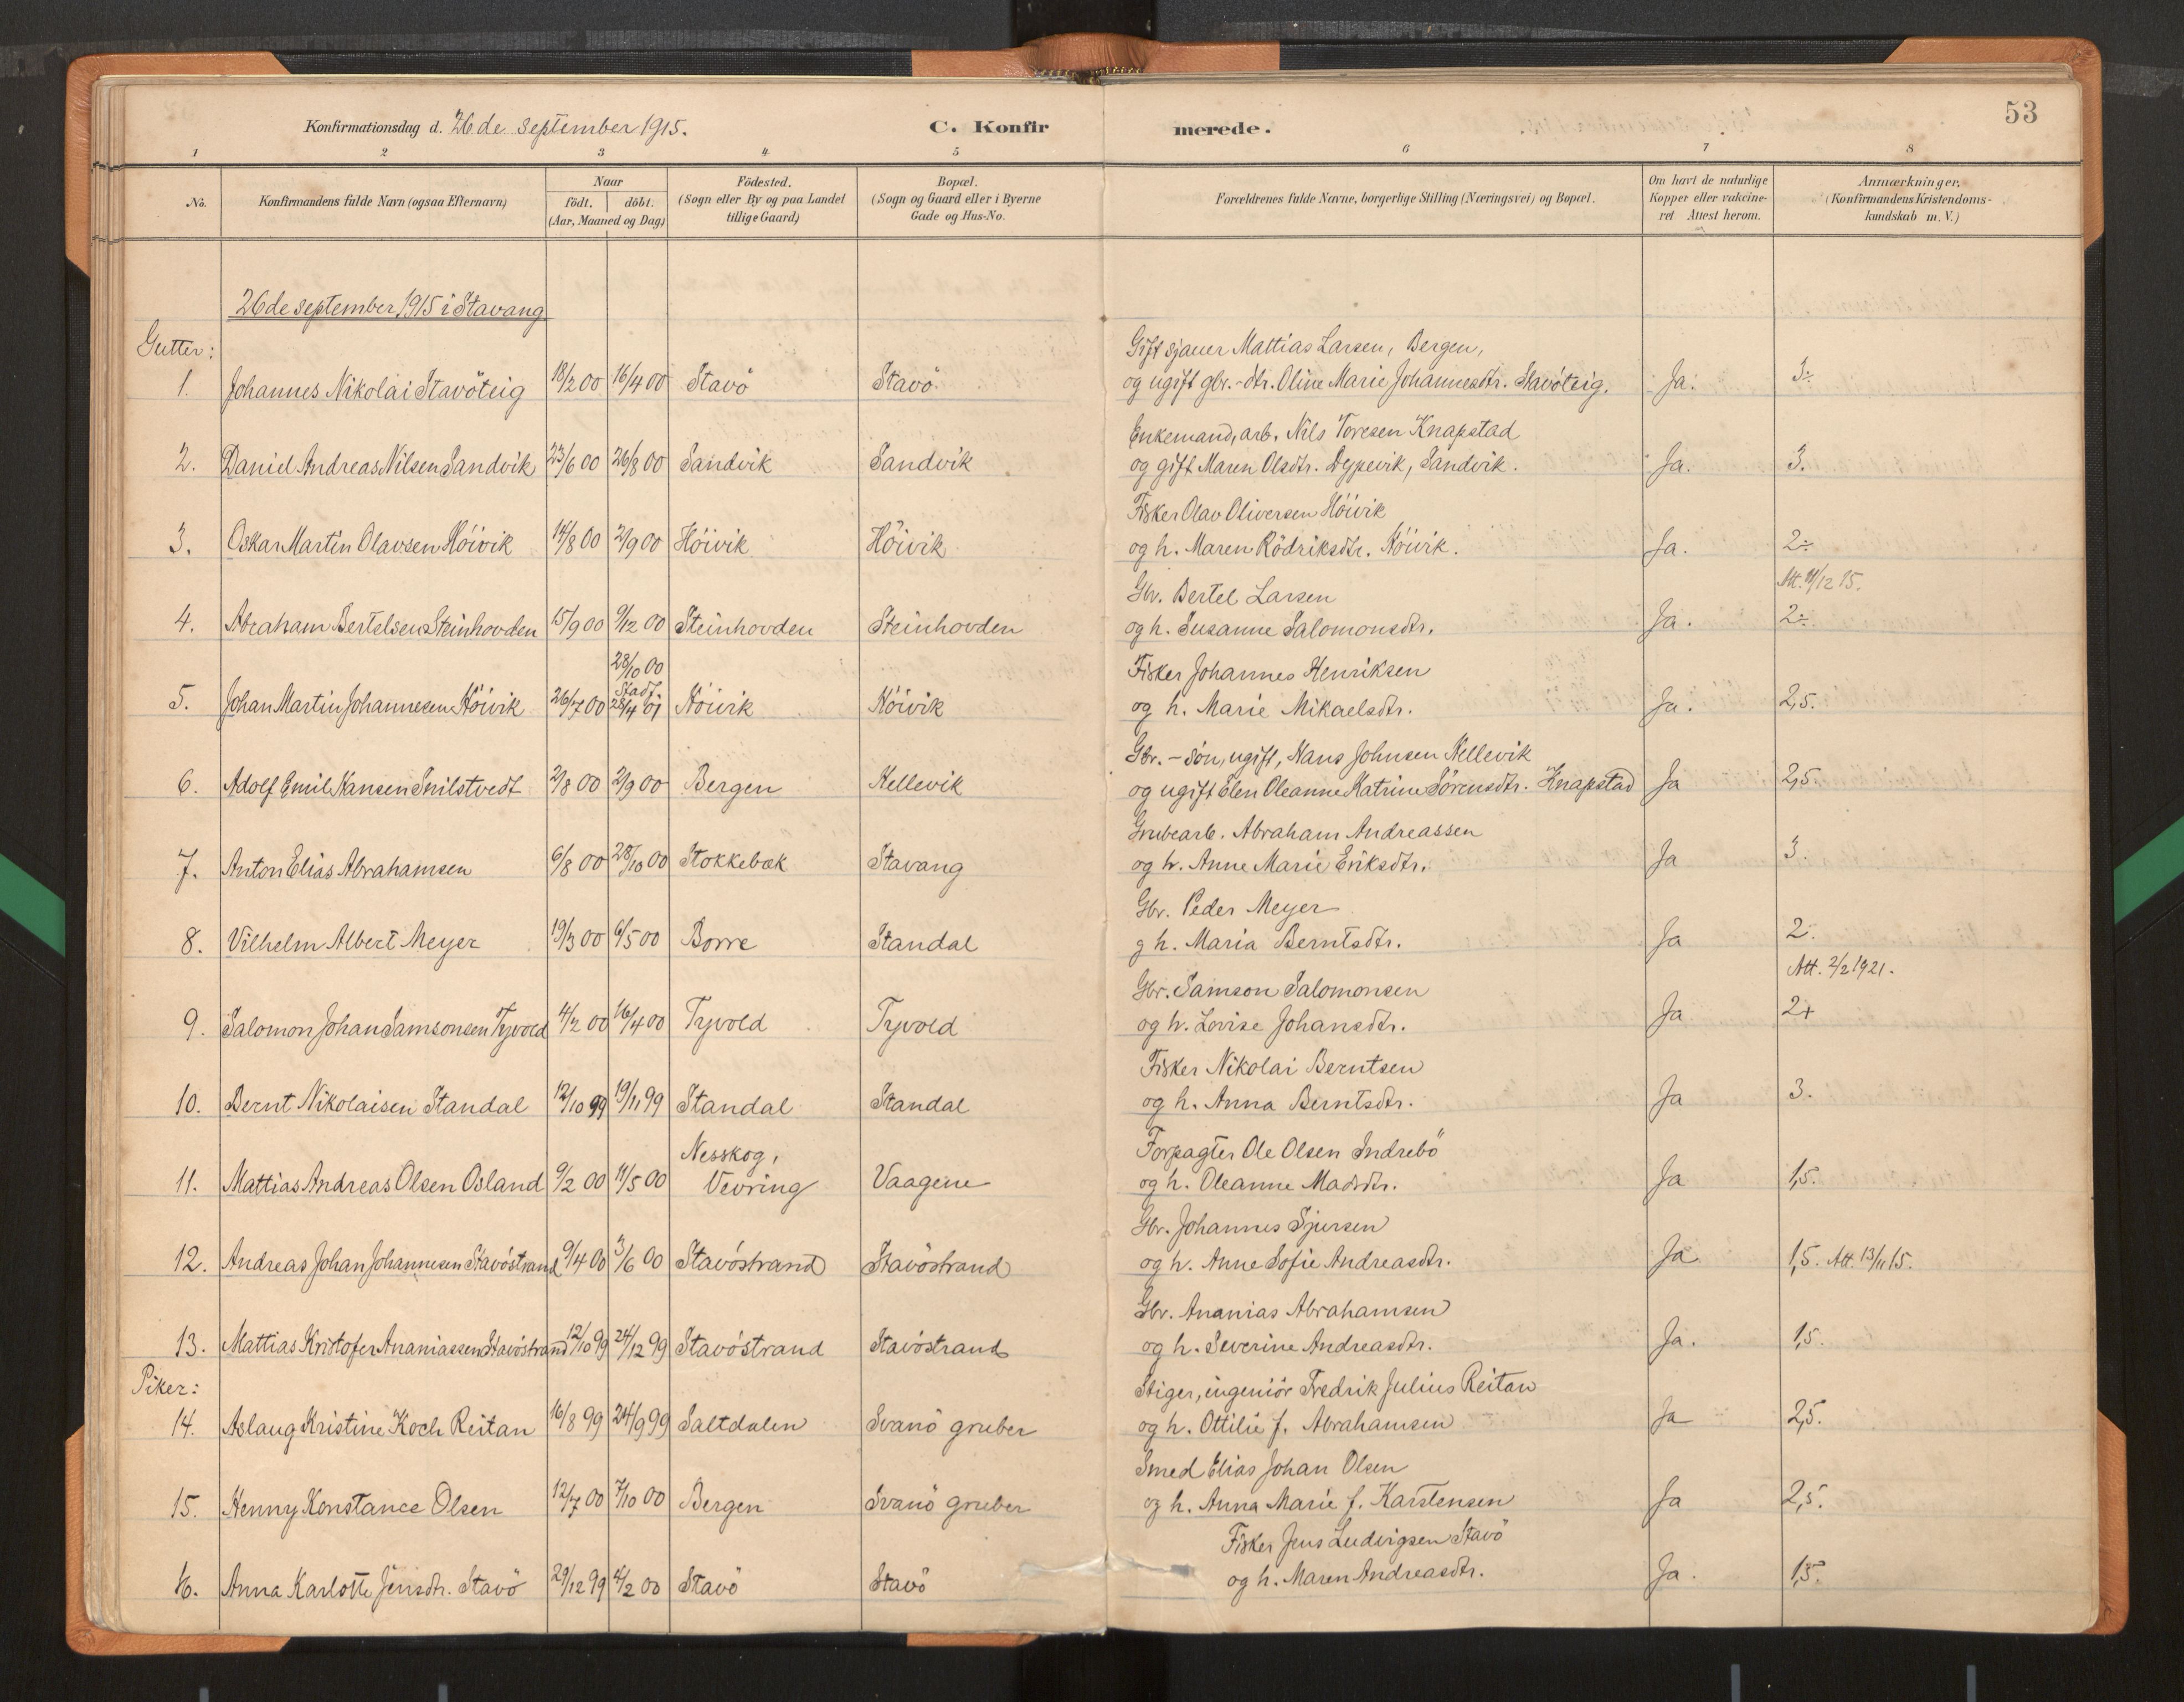 53
Konfirmationsdag d. 26 de september 1915. C. Konfirmerede.
1 2 3 4 5 6 7 8
No. Konfirmandens fulde Navn (ogsaa Efternavn) Naar født. døbt. (Aar, Maaned og Dag) Födested. (Sogn eller By og paa Landet tillige Gaard) Bopæl. (Sogn og Gaard eller i Byerne Gade og Hus-No. Forældrenes fulde Navne, borgerlige Stilling (Næringsvei) og Bopæl. Om havt de naturlige Kopper eller vakcineret Attest herom. Anmærkninger. (Konfirmandens Kristendomskundskab m. V.)
26 de september 1915 i Stavang
Gutter:
Gift sjauer Mattias Larsen, Bergen,
1. Johannes Nikolai Stavöteig 18/2 00 16/4 00 Stavö Stavö og ugift gbr.-dtr. Oline Marie Johannesdtr. Stavöteig. Ja. 3÷
Enkemand, arb. Nils Toresen Knapstad
2. Daniel Andreas Nilsen Sandvik 23/6 00 26/8 00 Sandvik Sandvik og gift Maren Olsdtr. Dypevik, Sandvik. Ja. 3.
Fisker Olav Oliversen Höivik
3. Oskar Martin Olavsen Höivik 14/8 00 2/9 00 Höivik Höivik og h. Maren Rödriksdtr. Höivik. Ja. 2÷
Gbr. Bertel Larsen Att. 11/12 15.
4. Abraham Bertelsen Steinhovden 15/9 00 9/12 00 Steinhovden Steinhovden og h. Susanne Salomonsdtr. Ja. 2÷
28/10 00 Fisker Johannes Henriksen
Stadf.
5. Johan Martin Johannesen Höivik 26/7 00 28/4 01 Höivik Höivik og h. Marie Mikaelsdtr. Ja. 2,5.
Gbr.-sön, ugift, Hans Johnsen Hellevik
6. Adolf Emil Hansen Snilstvedt 2/8 00 2/9 00 Bergen Hellevik og ugift Elen Oleanne Katrine Sörensdtr. Knapstad Ja 2,5.
Grubearb. Abraham Andreassen
7. Anton Elias Abrahamsen 6/8 00 28/10 00 Stokkebæk Stavang og h. Anne Marie Eriksdtr. Ja 3.
Gbr. Peder Meyer
8. Vilhelm Albert Meyer 19/3 00 6/5 00 Borre Standal g h. Maria Berntsdtr. Ja 2.
Gbr. Samson Salomonsen Att. 2/2 1921.
9. Salomon Johan Samsonsen Tyvold 4/2 00 16/4 00 Tyvold Tyvold og h. Lovise Johansdtr. Ja 2+
Fisker Nikolai Berntsen
10. Bernt Nikolaisen Standal 12/10 99 19/11 99 Standal Standal og h. Anna Berntsdtr. Ja 3.
Nesskog, Forpagter Ole Olsen Indrebö
11. Mattias Andreas Olsen Osland 9/2 00 11/5 00 Vevring Vaagene og h. Oleanne Madsdtr. Ja 1,5.
Gbr. Johannes Sjursen
12. Andreas Johan Johannesen Stavöstrand 9/4 00 3/6 00 Stavöstrand Stavöstrand og h. Anne Sofie Andreasdtr. Ja 1,5. Att. 13/11 15.
Gbr. Ananias Abrahamsen
13. Mattias Kristofer Ananiassen Stavöstrand 12/10 99 24/12 99 Stavöstrand Stavöstrand og h. Severine Andreasdtr. Ja. 1,5.
Piker: Stiger, ingeniör Fredrik Julius Reitan
14. Aslaug Kristine Koch Reitan 16/8 99 24/9 99 Saltdalen Svanö gruber og h. Ottilie f. Abrahamsen Ja 2,5.
Smed Elias Johan Olsen
15. Henny Konstance Olsen 12/7 00 7/10 00 Bergen Svanö gruber og h. Anna Marie f. Karstensen Ja 2,5.
Fisker Jens Ludvigsen Stavö
16. Anna Karlotte Jensdtr. Stavö 29/12 99 4/2 00 Stavö Stavö og h. Maren Andreasdtr. Ja. 1,5.